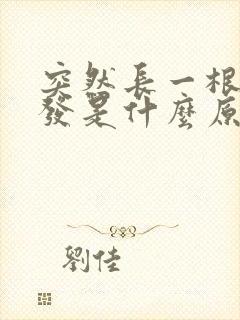 突然長一根
發是什麼原
劉佳